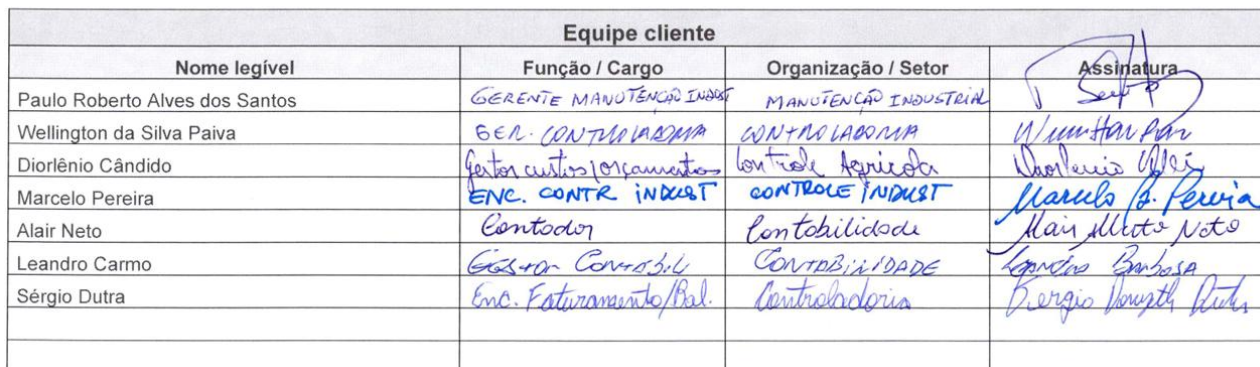 Equipe cliente
Nome legível Função / Cargo Organização / Setor Assinatura
Paulo Roberto Alves dos Santos GERENTE MANUTENÇÃO INDUST MANUTENÇÃO INDUSTRIAL
Wellington da Silva Paiva GER. CONTROLADORIA CONTROLADORIA
Diorlênio Cândido Gestor custos/orçamentos Controle Agricola
Marcelo Pereira ENC. CONTR INDUST CONTROLE INDUST Marcelo B. Pereira
Alair Neto Contador Contabilidade Neto
Leandro Carmo GESTOR CONTÁBIL CONTABILIDADE Leandro Barbosa
Sérgio Dutra Enc. Faturamento/Bal. Controladoria Sergio Dutra